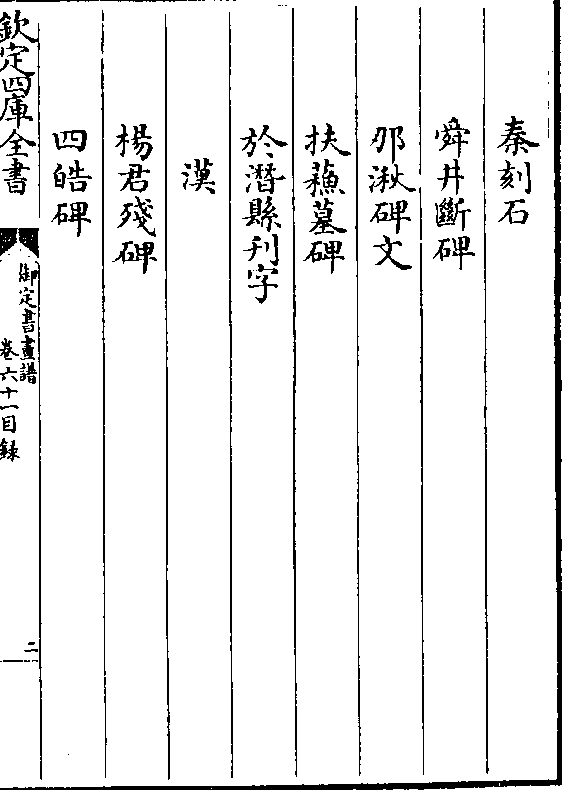 秦刻石
舜井斷碑
邢湫碑文
扶蘓墓碑
於濳縣刋字
漢
楊君殘碑
四皓碑
欽定四庫全書
御定書畫譜
卷六十一目錄
二